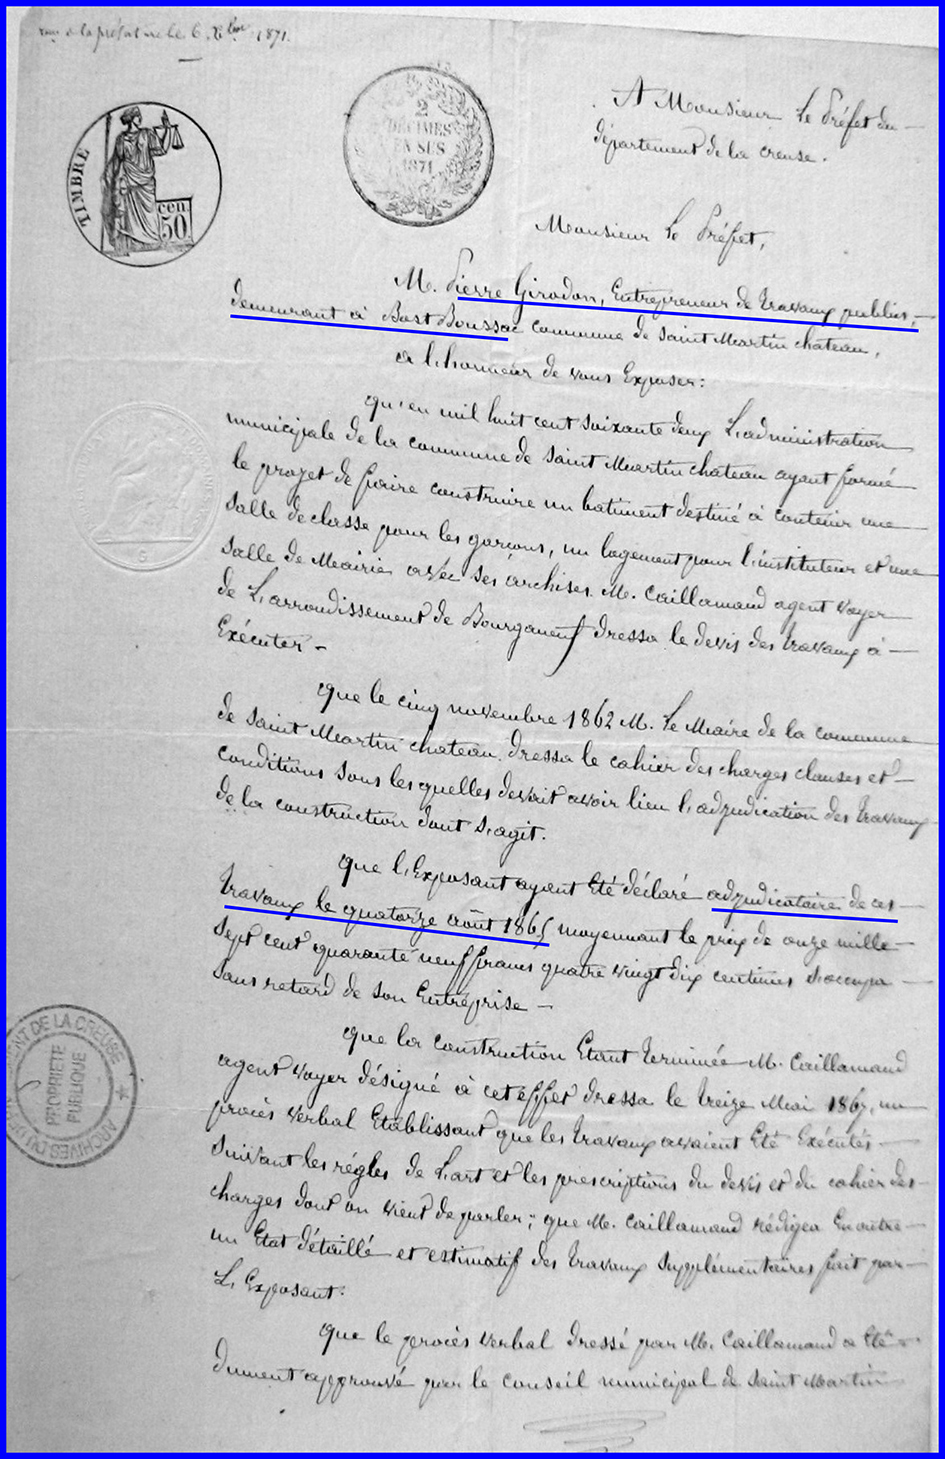 à la préfecture le 6 Xbre 1871.
TIMBRE
cen.
50
2
DÉCIMES
EN SUS
1871
A Monsieur le Préfet du
département de la creuse.
Monsieur le Préfet,
M. Pierre Girodon, Entrepreneur de travaux publics,
demeurant à Bost Boussac commune de Saint Martin chateau,
a l'honneur de vous Exposer:
qu'en mil huit cent soixante deux L'administration
municipale de la commune de Saint Martin chateau ayant formé
le projet de faire construire un batiment destiné à contenir une
salle de classe pour les garçons, un logement pour l'instituteur et une
salle de Mairie avec ses archives. M. Caillamaud agent voyer
de L'arrondissement de Bourganeuf dressa le devis des travaux à
Exécuter -
que le cinq novembre 1862 M. Le Maire de la commune
de Saint Martin chateau dressa le cahier des charges clauses et
conditions sous les quelles devait avoir lieu l'adjudication des travaux
de la construction dont s'agit.
que l'Exposant ayant Eté déclaré adjudicataire de ces
travaux le quatorze août 1865 moyennant le prix de onze mille
sept cent quarante neuf francs quatre vingt dix centimes s'occupa
sans retard de son Entreprise -
que la construction Etant terminée M. Caillamaud
agent voyer désigné à cet effet dressa le treize Mai 1867, un
procès verbal Etablissant que les travaux avaient Eté Exécutés
suivant les régles de L'art et les prescriptions du devis et du cahier des
charges dont on vient de parler; que M. Caillamaud rédigea En outre
un Etat détaillé et estimatif des travaux supplémentaires fait par
L'Exposant.
que le procès verbal dressé par M. Caillamaud a Eté
dument approuvé par le Conseil municipal de Saint Martin
ARCHIVES DU DEPARTEMENT DE LA CREUSE
PROPRIETE
PUBLIQUE